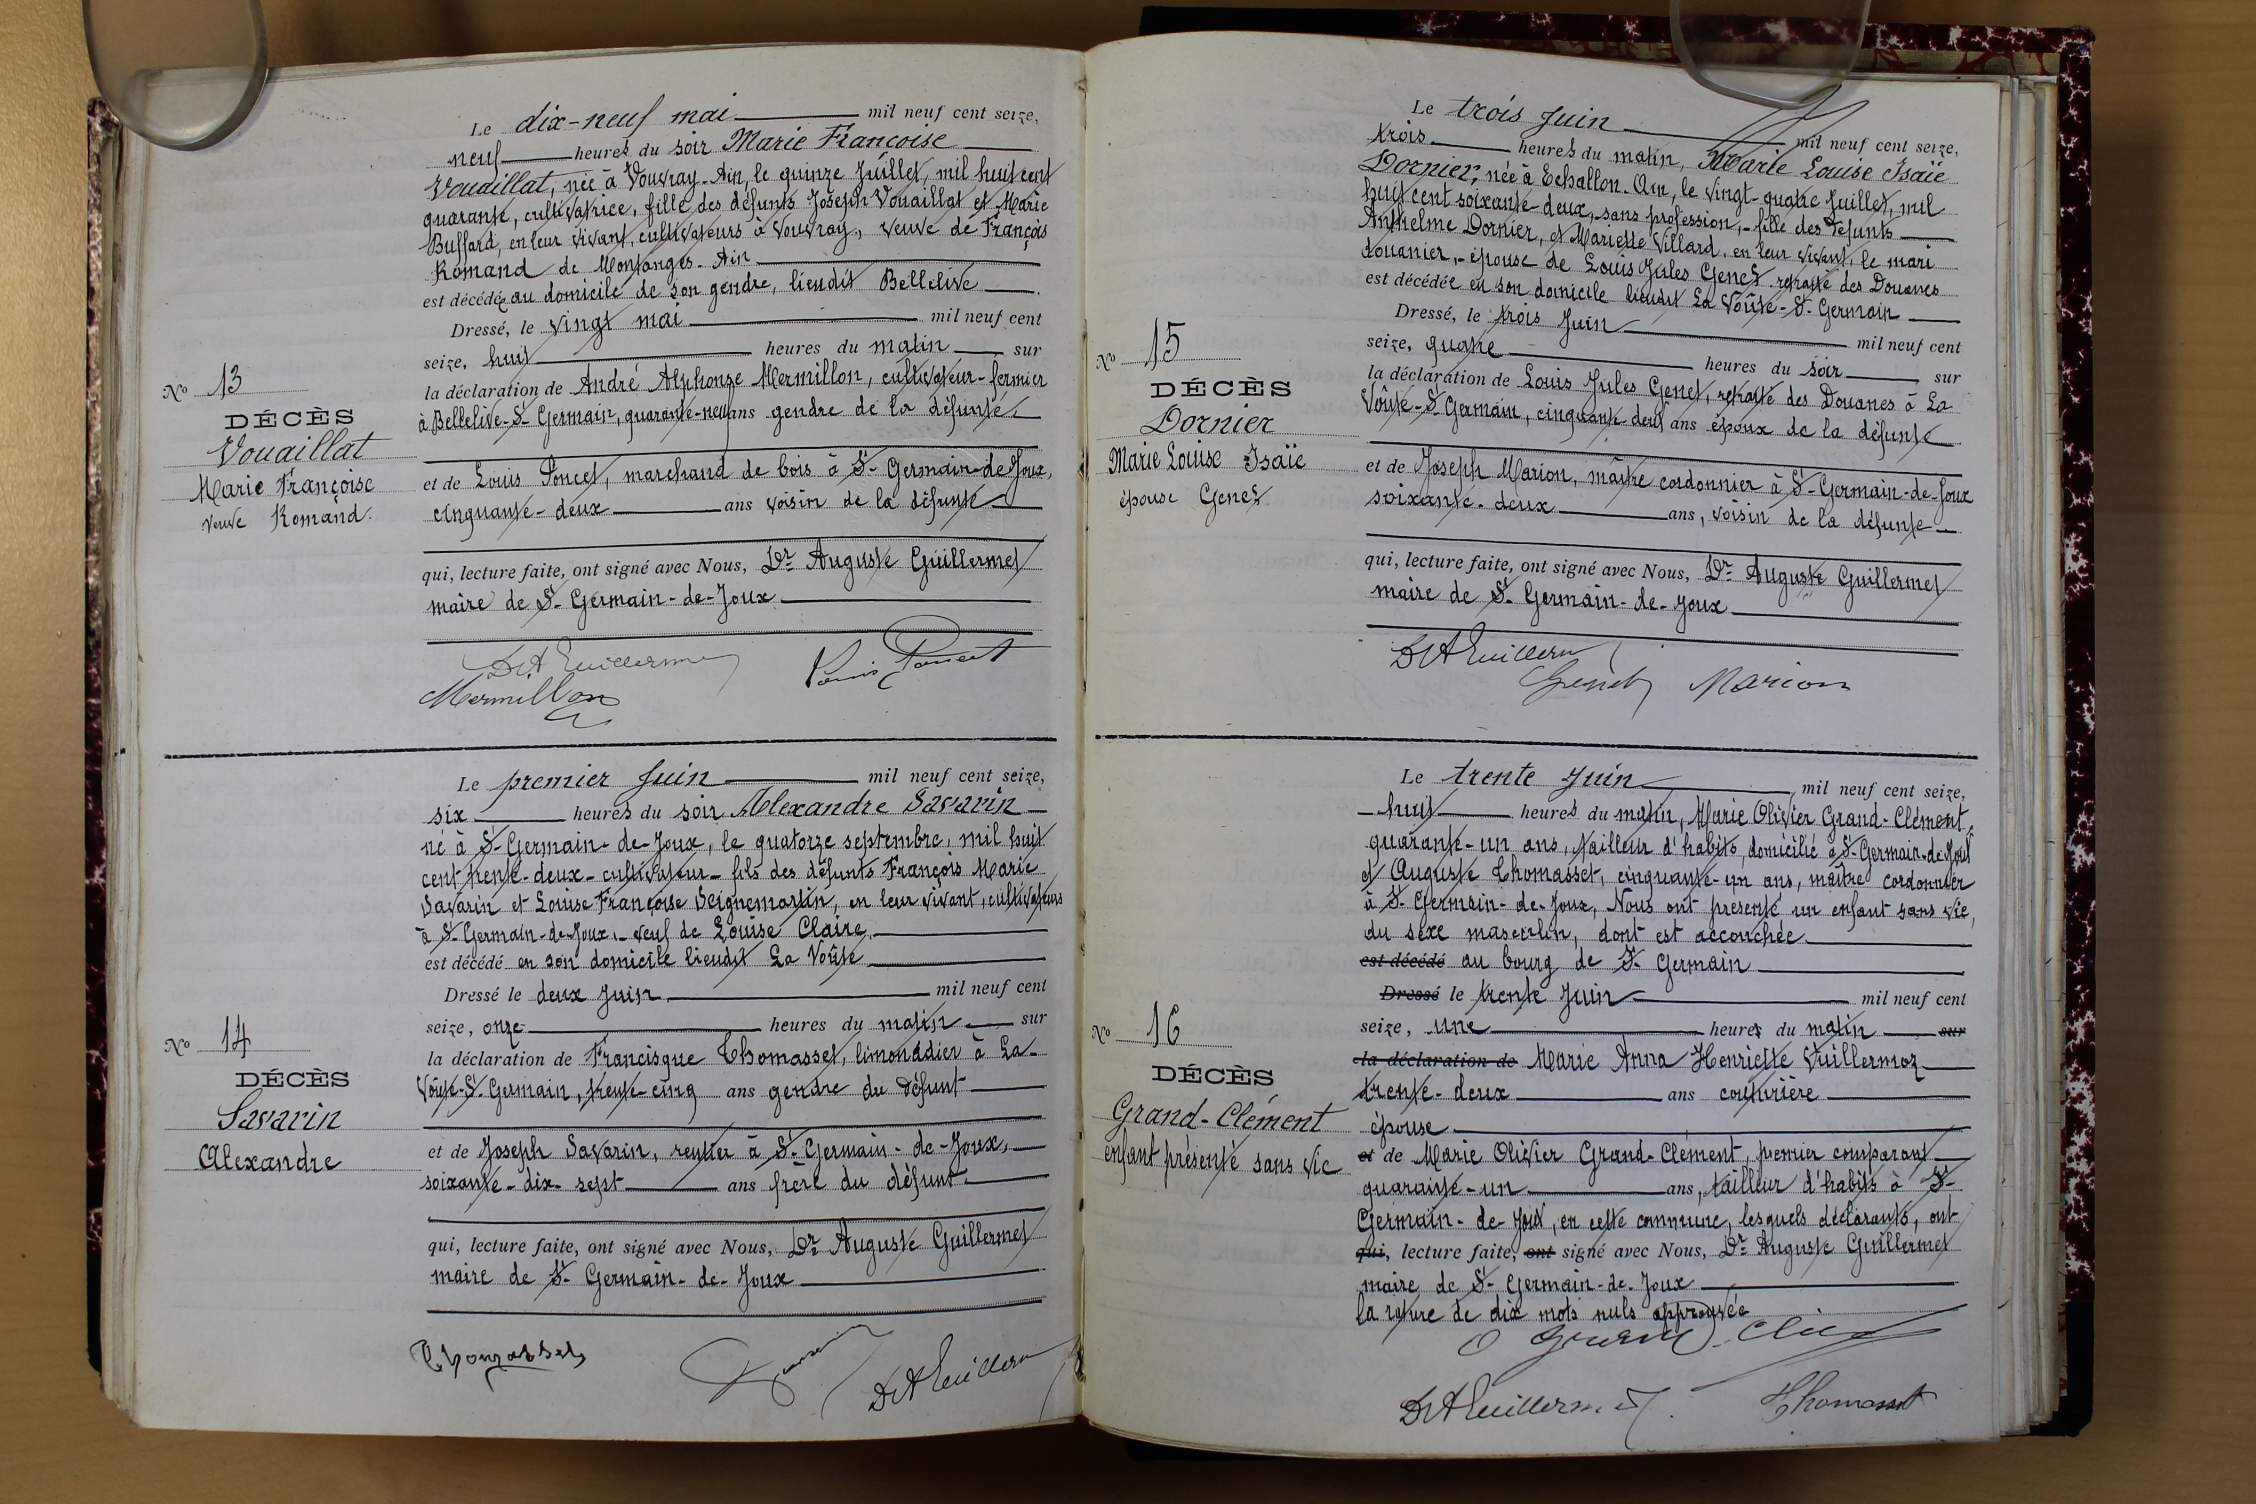 Le dix-neuf mai mil neuf cent seize,
neuf heures du soir Marie Françoise
Vouaillat, née à Vouvray-Ain, le quinze Juillet, mil huit cent
quarante, cultivatrice, fille des défunts Joseph Vouaillat et Marie
Buffard, en leur vivant, cultivateurs à Vouvray, veuve de François
Romand de Montanges-Ain
est décédée au domicile de son gendre, lieudit Bellelive
Dressé, le vingt mai mil neuf cent
seize, huit heures du matin sur
la déclaration de André Alphonse Mermillon, cultivateur-fermier
à Bellelive-St-Germain, quarante-neuf ans gendre de la défunte.
et de Louis Poncet, marchand de bois à St-Germain-de-Joux,
cinquante-deux ans voisin de la défunte
qui, lecture faite, ont signé avec Nous, Dr Auguste Guillermet
maire de St-Germain-de-Joux
Dr A Guillermet
Louis Poncet
Mermillon
No 13
DÉCÈS
Vouaillat
Marie Françoise
veuve Romand.
Le premier Juin mil neuf cent seize,
six heures du soir Alexandre Savarin
né à St-Germain-de-Joux, le quatorze septembre, mil huit
cent trente-deux-cultivateur-fils des défunts François Marie
Savarin et Louise Françoise Seignemartin, en leur vivant, cultivateurs
à St-Germain-de-Joux,-veuf de Louise Claire,
est décédé en son domicile lieudit La Voûte
Dressé le deux Juin mil neuf cent
seize, onze heures du matin sur
la déclaration de Francisque Thomasset, limonadier à La-
Voûte-St-Germain, trente-cinq ans gendre du défunt
et de Joseph Savarin, rentier à St-Germain-de-Joux,
soixante-dix-sept ans frère du défunt.
qui, lecture faite, ont signé avec Nous, Dr Auguste Guillermet
maire de St-Germain-de-Joux
Thomasset
Savarin
Dr A Guillermet
No 14
DÉCÈS
Savarin
Alexandre
Le trois Juin mil neuf cent seize,
trois heures du matin, Marie Louise Isaïe
Dornier, née à Echallon-Ain, le vingt-quatre Juillet, mil
huit cent soixante-deux,-sans profession,-fille des défunts
Anthelme Dornier, et Mariette Villard, en leur vivant, le mari
douanier,-épouse de Louis Jules Genet-retraité des Douanes
est décédée en son domicile lieudit La Voûte-St-Germain
Dressé, le trois Juin mil neuf cent
seize, quatre heures du soir sur
la déclaration de Louis Jules Genet, retraité des Douanes à La
Voûte-St-Germain, cinquante-deux ans époux de la défunte
et de Joseph Marion, maître cordonnier à St-Germain-de-Joux
soixante-deux ans, voisin de la défunte
qui, lecture faite, ont signé avec Nous, Dr Auguste Guillermet
maire de St-Germain-de-Joux
Dr A Guillermet
Genet Marion
No 15
DÉCÈS
Dornier
Marie Louise Isaïe
épouse Genet
Le trente Juin mil neuf cent seize,
huit heures du matin, Marie Olivier Grand-Clément,
quarante-un ans, tailleur d'habits, domicilié à St-Germain-de-Joux
et Auguste Thomasset, cinquante-un ans, maître cordonnier
à St-Germain-de-Joux, Nous ont présenté un enfant sans vie,
du sexe masculin, dont est accouchée
est décédé au bourg de St-Germain
Dressé le trente Juin mil neuf cent
seize, une heures du matin sur
la déclaration de Marie Anna Henriette Vuillermoz
trente-deux ans couturière
épouse
et de Marie Olivier Grand-Clément, premier comparant
quarante-un ans, tailleur d'habits à St-
Germain-de-Joux, en cette commune, lesquels déclarants, ont
qui, lecture faite, ont signé avec Nous, Dr Auguste Guillermet
maire de St-Germain-de-Joux
la rature de dix mots nuls approuvée
O Grand-Clément
Dr A Guillermet
Thomasset
No 16
DÉCÈS
Grand-Clément
enfant présenté sans vie